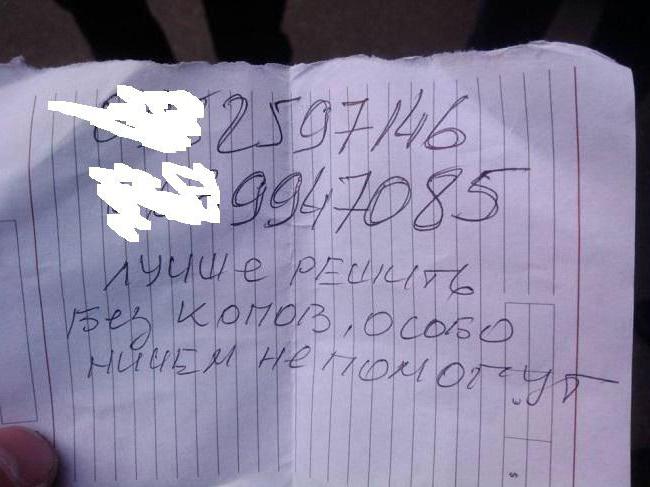 2597146
9947085
ЛУЧШе РЕШИТЬ
Без КОПОВ, ОСОБО
НИЧЕМ Не ПОМОГУТ